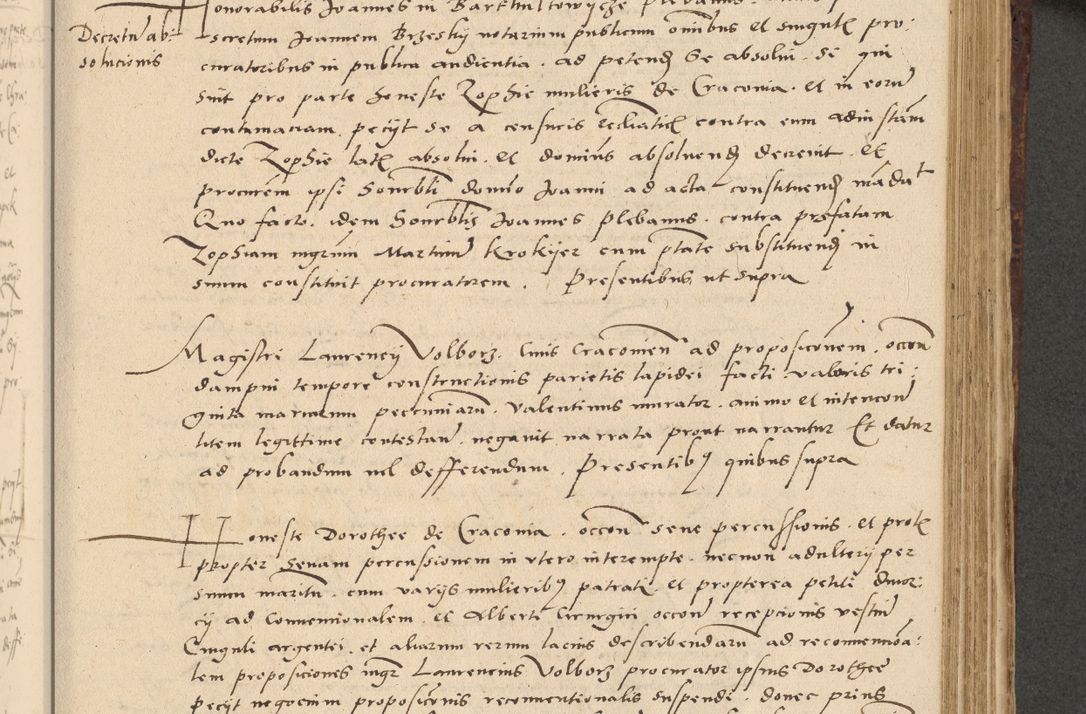 Honorabilis Joannes in
Decretu ab=
solucionis
scretum Joannem Brzesky notarium publicum omnibus et singulis pro=
curatoribus in publica audientia. ad petend se absolui. si qui
sint pro parte honeste Zophie mulieris de Cracovia. et in eoru
contumaciam. pecijt se a censuris contra eum ad instam
dicte Zophie latis absolui. et dominus absoluend decreuit. et
procurem ipsi honorbli domino Joanni ad acta constituend madut
Quo facto. idem honorblis Joannes Plebanus. contra prefatam
Zophiam mgrum Martinu Krokyer cum ptate substituend in
suum constituit procuratorem. Presentibus ut supra
Magistri Laurencij Volborz. Ciuis Cracouien ad proposiconem. occon
dampni tempore constructionis parietis lapidei facti valoris tri=
ginta marcarum pecuniaru. Valentinus murator. animo et intencon
litem legittime contestan. negauit narrata prout narrantur Et datur
ad probandum uel defferendum. Presentibus quibus supra
Honeste Dorothee de Cracouia. occon seue percussionis. et prolis
propter seuam percussionem in vtero interempte. necnon adulterij per
suum maritu. cum varijs mulieribus patratis. et propterea petiti diuor=
cij ad Conuencionalem. et Alberti Cirurgici occone recepcionis vestiu
Cinguli argentei. et aliarum rerum lacius describendaru ad reconuenciona=
lem proposiciones mgr Laurencius Volborz procurator ipsius Dorothee
Pecijt negocium proposiconis reconuentionalis suspendi. donec prius